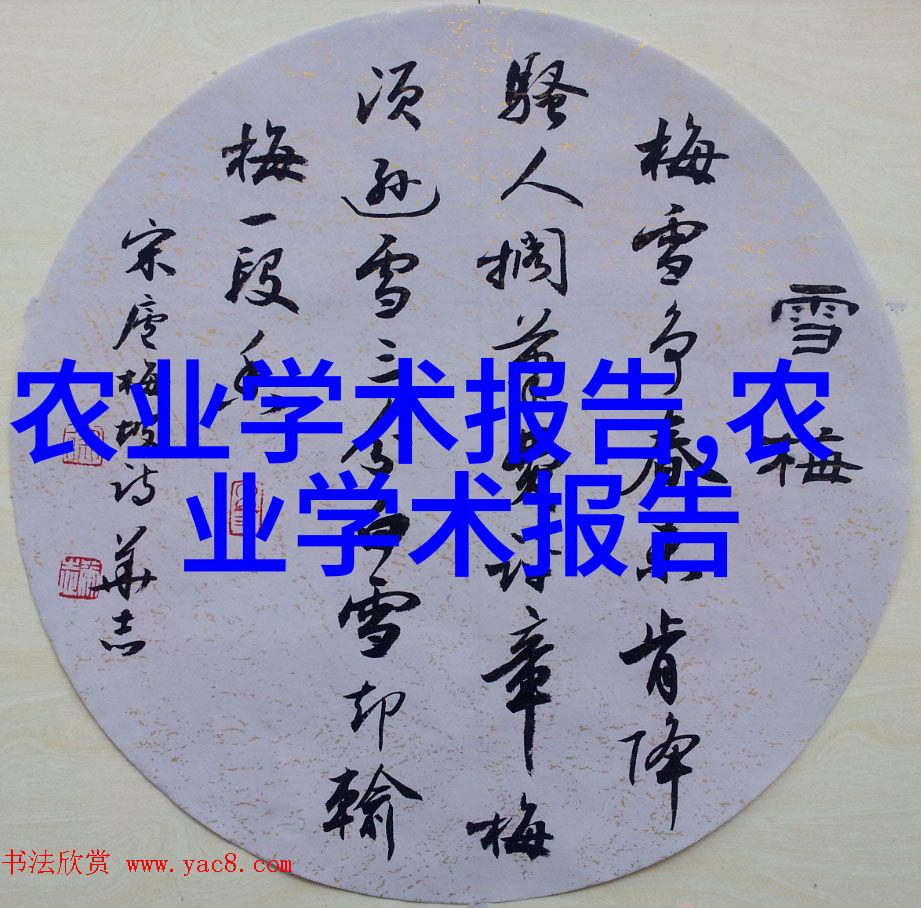 雪梅
梅雪争春未肯降
骚人搁筆费评章梅
须逊雪三分白雪却輸
梅一段香
宋盧梅坡诗 華志
农业学术报告,农
业学术报告
书法欣赏 www.yac8.com